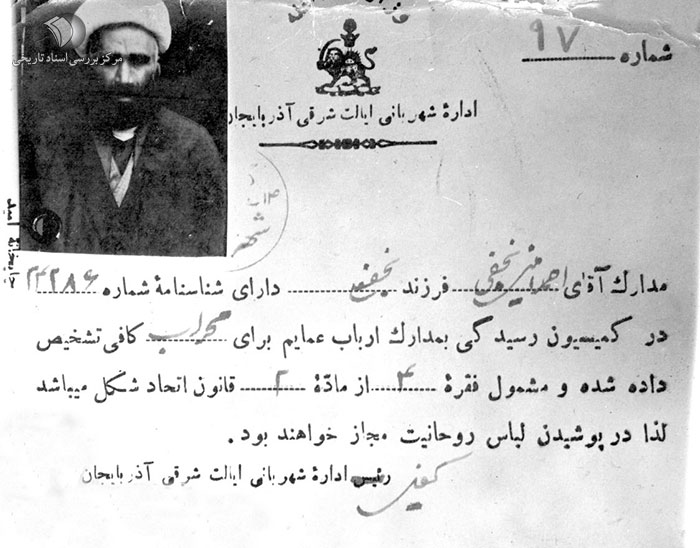 مرکز بررسی اسناد تاریخی
شماره ۹۷
ادارهٔ شهربانی ایالت شرقی آذربایجان
چاپخانهٔ امید
مدارك آقای نجفی فرزند نجف دارای شناسنامهٔ شماره ۲۲۲۸۶
در کمیسیون رسیدگی بمدارك ارباب عمایم برای محراب کافی تشخیص
داده شده و مشمول فقرهٔ ۴ از مادّهٔ ۲ قانون اتحاد شکل میباشد
لذا در پوشیدن لباس روحانیت مجاز خواهند بود.
رئیس ادارهٔ شهربانی ایالت شرقی آذربایجان